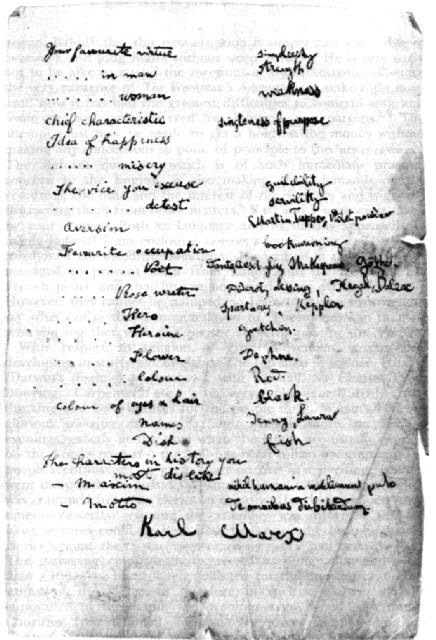 Your favourite virtue simplicity
..... in man strength
..... woman weakness
chief characteristic singleness of purpose
Idea of happiness
..... misery
The vice you excuse gullibility
detest servility
Aversion Martin Tupper,
Favourite occupation bookworming
..... Poet Shakespeare, Göthe.
..... Prose writer Diderot, Lessing, Hegel, Balzac
..... Hero Spartacus, Keppler
..... Heroine Gretchen.
..... Flower Daphne.
..... colour Red.
colour of eyes & hair black.
..... names Jenny, Laura
..... Dish fish
The characters in history you
most dislike
– Maxim nihil humani a me alienum puto
– Motto De omnibus dubitandum.
Karl Marx